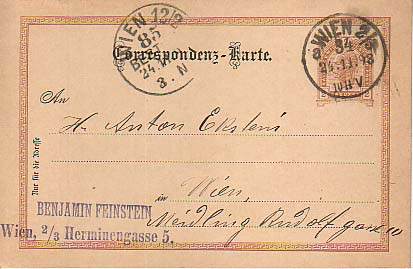 WIEN
85
Correspondenz-Karte.
WIEN
An
H. Anton Ekstein
in Wien,
Meidling Rudolfgasse 10
Nur für die Adresse
BENJAMIN FEINSTEIN
Wien, 2/3 Herminengasse 5.